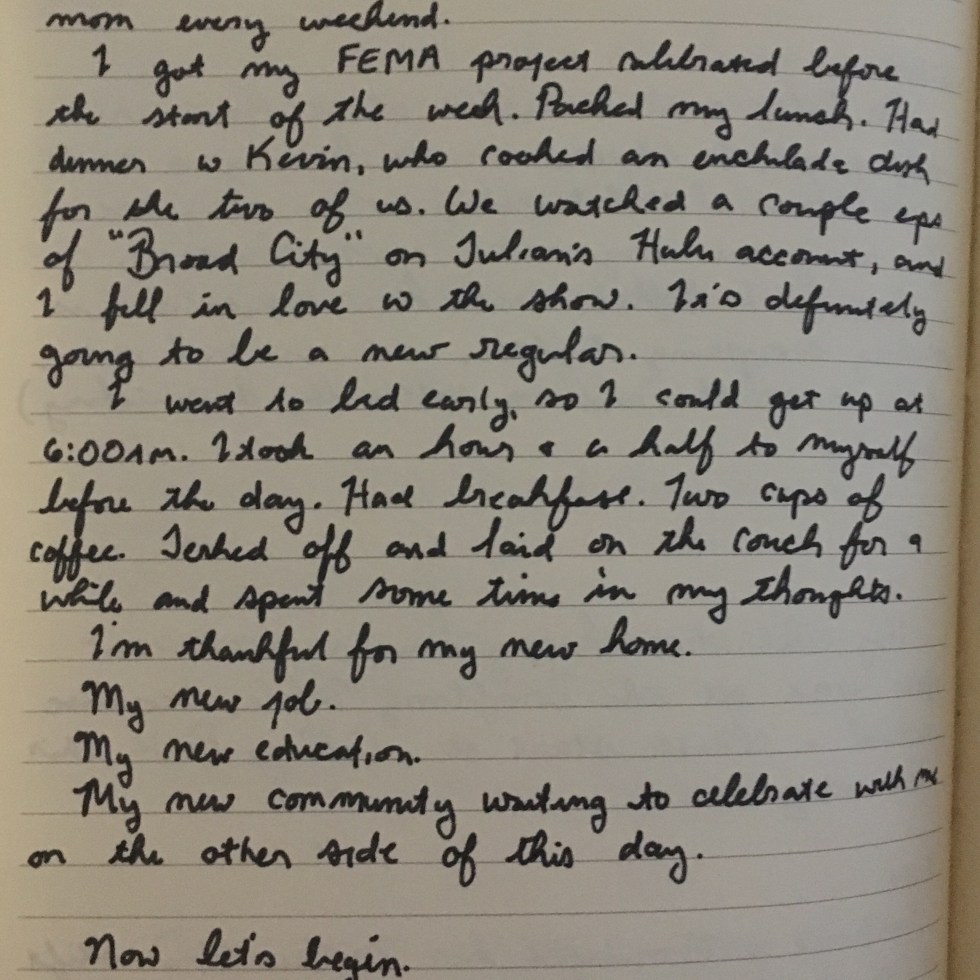 mom every weekend.
I got my FEMA project calibrated before
the start of the week. Packed my lunch. Had
dinner w Kevin, who cooked an enchilada dish
for the two of us. We watched a couple eps
of "Broad City" on Julian's Hulu account, and
I fell in love w the show. It's definitely
going to be a new regular.
I went to bed early, so I could get up at
6:00AM. I took an hour & a half to myself
before the day. Had breakfast. Two cups of
coffee. Jerked off and laid on the couch for a
while and spent some time in my thoughts.
I'm thankful for my new home.
My new job.
My new education.
My new community waiting to celebrate with me
on the other side of this day.
Now let's begin.